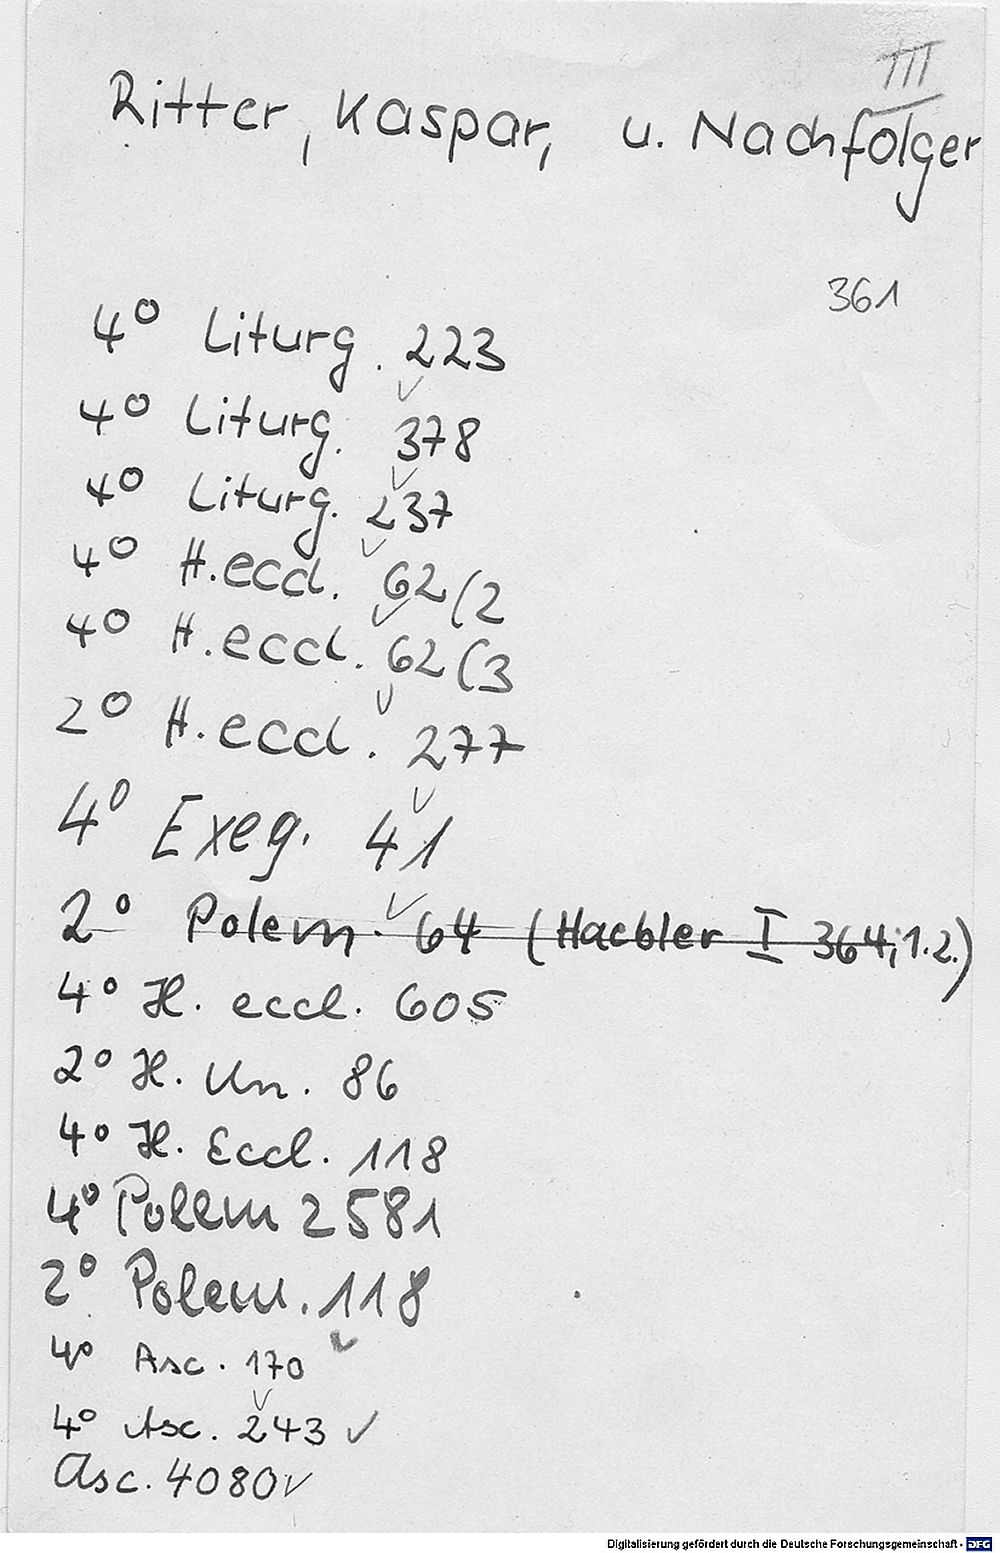 III
Ritter, Kaspar, u. Nachfolger
361
4° Liturg. 223
4° Liturg. 378
4° Liturg. 237
4° H.eccl. 62(2
4° H.eccl. 62(3
2° H.eccl. 277
4° Exeg. 41
2° Polem. 64 (Haebler I 364; 1.2.)
4° H. eccl. 605
2° H. Un. 86
4° H. Eccl. 118
4° Polem 2581
2° Polem. 118
4° Asc. 170
4° Asc. 243 ✓
Asc. 4080 ✓
Digitalisierung gefördert durch die Deutsche Forschungsgemeinschaft - DFG